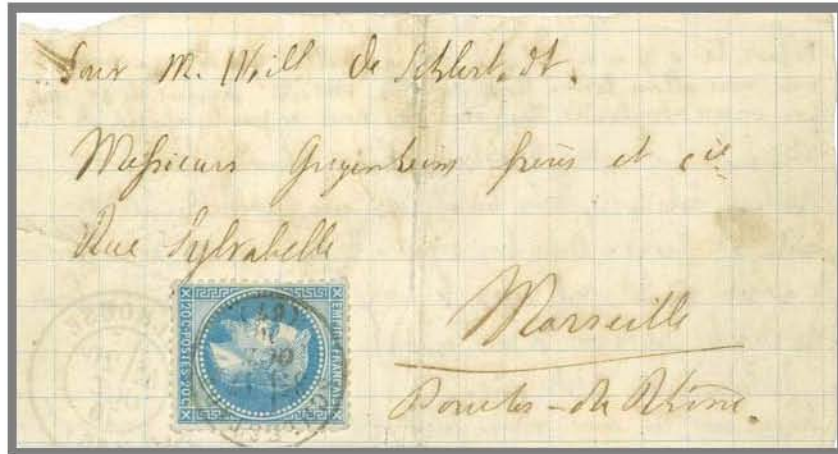 Pour M. Weill de Schlest.dt.
Messieurs frères et Cie
Rue Sylvabelle
Marseille
Bouches-du-Rhône.
EMPIRE FRANÇAIS
20 C POSTES 20 C